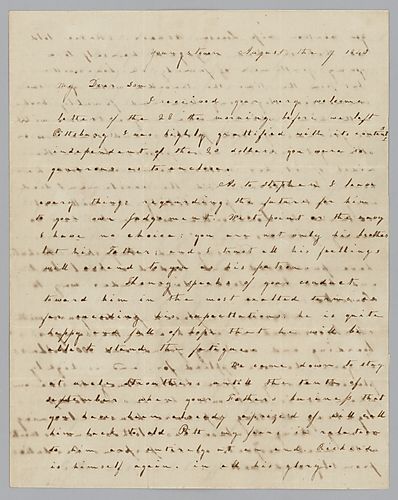 Youngstown August the 7 1848
My Dear Son
I received your very welcome
letter of the 28 the morning before we left
Pittsburg I was highly gratified with its contents
independant of the 20 dollars you were so
generous as to enclose.
As to Stephen I leave
every thing regarding the future for him
to your own judgement. West point or the navy
I have no choice; you are not only his brother
but his Father and I trust all his feelings
will ascend to you as his patron.
Henry speaks of your conduct
toward him in the most exalted terms as
far exceeding his expectations he is quite
happy and full of hope that he will be
able to stand the fatigue
We came down to stay
at uncle untill the tenth of
september when your Father's business that
you have been already apprized of will call
him back to old Pitt my fears in relation
to Jim are entirely at an end. Richard
is himself again, in all his glory